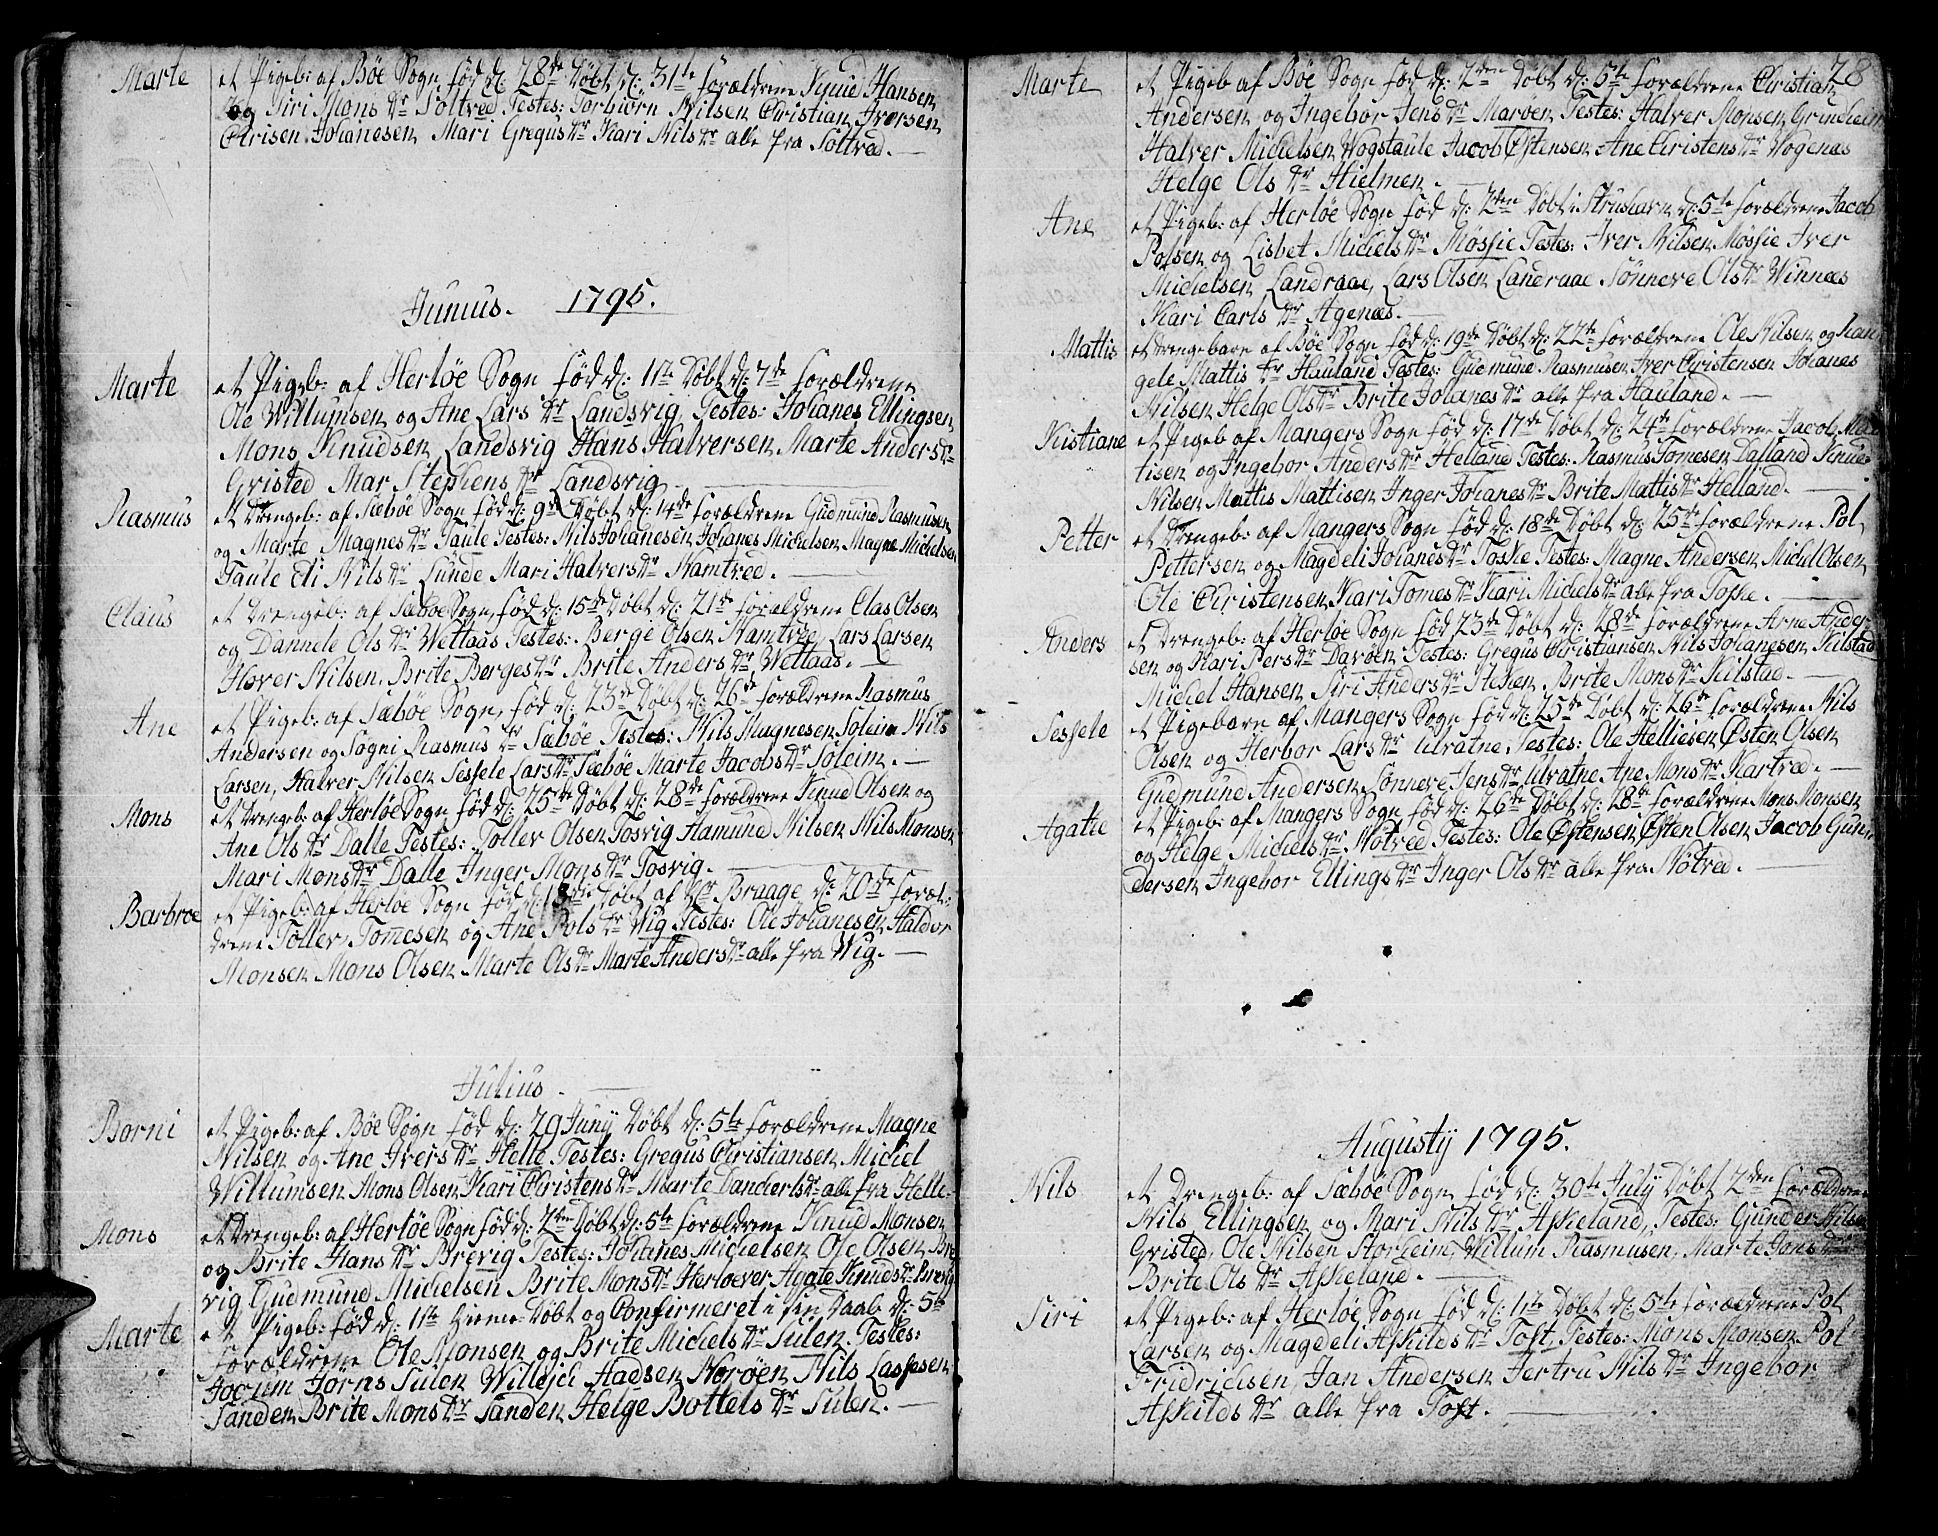 Marte et Pigeb: af Böe Sogn föd d: 28de Döbt d: 31te forældrene Knud Hansen
og Siri Mons dr Soltved Testes: Torbiörn Nilsen Christian Iversen
Chrisen Johanesen Mari Gregus dr Kari Nils dr alle fra Soltved.
Junius. 1795.
Marte et Pigeb: af Herlöe Sogn föd d: 1te Döbt d: 7de forældrene
Ole Willumsen og Ane Lars dr Landsvig, Testes: Johanes Ellingsen
Mons Knudsen Landsvig Hans Halversen Marte Anders dr
Gristed Mar Stephens dr Landsvig
Rasmus et Drengeb: af Sæböe Sogn föd d: 9de Döbt d: 14de forældrene Gudmund Rasmusen
og Marte Magnes dr Taule Testes: Nils Johanesen Johanes Michelsen Magne Michelsen
Taule Eli Nils dr Lunde Mari Halvers dr Namtved.
Claus et Drengeb: af Sæböe Sogn, föd d: 15de Döbt d: 21de forældrene Clas Olsen
og Dannele Ols dr Wettaas Testes: Berge Olsen Namtved Lars Larsen
Hover Nilsen, Brite Berges dr Brite Anders dr Wettaas.
Ane et Pigeb: af Sæböe Sogn, föd d: 23de Döbt d: 26de forældrene Rasmus
Andersen og Sogni Rasmus dr Sæböe Testes: Nils Magnesen Soleim Nils
Larsen, Halver Nilsen Sessele Lars dr Sæböe Marte Jacobs dr Soleim.
Mons et Drengeb: af Herlöe Sogn föd d: 25de Döbt d: 28de forældrene Knud Olsen og
Ane Ols dr Dalle Testes: Toller Olsen Tosvig Hamund Nilsen Nils Monsen
Mari Mons dr Dalle Inger Mons dr Tosvig.
Barbroe et Pigeb: af Herlöe Sogn föd d: 13de Döbt af Hr Braage d: 20de foræl:
drene Toller Tomesen og Ane Pols dr Wig Testes: Ole Johanesen Haldor
Monsen Mons Olsen Marte Ols dr Marte Anders dr alle fra Wig.
Julius.
Borni et Pigeb: af Böe Sogn föd d: 29 Juny Döbt d: 5te forældrene Magne
Nilsen og Ane Ivers dr Helle Testes: Gregus Christiansen Michel
Willumsen Mons Olsen Kari Christens dr Marte Danckerls dr alle fra Helle.
Mons et Drengeb: af Herlöe Sogn föd d: 2den Döbt d: 5te forældrene Knud Monsen
og Brite Hans dr Brevig Testes: Johanes Michelsen Ole Olsen Bre
vig Gudmund Michelsen Brite Mons dr Herloever Agate Knuds dr Brevig
Marte et Pigeb: föd d: 1te hieme Döbt og Confirmeret i sin Daab d: 5te
forældrene Ole Monsen og Brite Michels dr Sulen Testes:
Jocum Jörns Sulen Willejch Aadsen Noröen Nils Lassesen
Sanden Brite Mons dr Sanden Helge Bottels dr Sulen.
28
Marte et Pigeb: af Böe Sogn föd d: 2den Döbt d: 5te forældrene Christian
Andersen og Ingebor Jens dr Maroen Testes: Halver Monsen Grindheim
Halver Michelsen Wogstaule Jacob Östensen Ane Christens dr Wogenæs
Helge Ols dr Hielmen.
Ane et Pigeb: af Herlöe Sogn föd d: 2den Döbt i Strusharn d: 5te forældrene Jacob
Polsen og Lisbet Michels dr Mössie Testes: Iver Nilsen Mössie Iver
Michelsen Landraae, Lars Olsen Landraae Sönneve Ols dr Winnæs
Kari Carls dr Agenæs.
Mattis et Drengebarn af Böe Sogn föd d: 19de Döbt d: 22te forældrene Ole Nilsen og Ran
gele Mattis dr Hauland Testes: Gudmund Rasmusen Iver Christensen Johanes
Nilsen Helge Ols dr Brite Johanes dr alle fra Hauland.
Kistiane et Pigeb: af Mangers Sogn föd d: 17de Döbt d: 24de forældrene Jacob Mat
tisen og Ingebor Anders dr Helland Testes: Rasmus Tomesen Dalland Knud
Nilsen Mattis Mattisen Inger Johanes dr Brite Mattis dr Helland.
Petter et Drengeb: af Mangers Sogn föd d: 18de Döbt d: 25de forældrene Pol
Pettersen og Magdeli Johanes dr Toske Testes: Magne Andersen Michel Olsen
Ole Christensen Kari Tomes dr Kari Michels dr alle fra Toske.
Anders et Drengeb: af Herlöe Sogn föd 23de Döbt d: 28de forældrene Arne Ander-
sen og Kari Pers dr Davöen Testes: Gregus Christiansen Nils Johanesen Kilstad
Michel Hansen Siri Anders dr Brite Mons dr Kilstad.
Sessele et Pigebarn af Mangers Sogn föd d: 25de Döbt d: 26de forældrene Nils
Olsen og Herbor Lars dr Ulvatne Testes: Ole Helliesen Östen Olsen
Gudmund Andersen, Sönneve Jens dr Ulvatne Ane Mons dr Kartved.
Agathe et Pigeb: af Mangers Sogn föd d: 26de Döbt d: 28de forældrene Mons Monsen
og Helge Michels dr Nötved Testes: Ole Östensen, Östen Olsen Jacob Gun
dersen Ingebor Ellings dr Inger Ols dr alle fra Nötved.
Augustij 1795.
Nils et Drengeb: af Sæböe Sogn föd d: 30te July Döbt 2den forældrene
Nils Ellingsen og Mari Nils dr Askeland, Testes: Gunder Nilsen
Gristed, Ole Nilsen Storheim, Willum Rasmusen, Marte Jons dr
Brite Ols dr Askeland.
Siri et Pigeb: af Herlöe Sogn föd d: 1te Döbt d: 5te forældrene Pol
Larsen og Magdeli Askilds dr Toft, Testes: Mons Monsen Pol
Fridrichsen, Jan Andersen Jertru Nils dr Ingebor
Askilds dr alle fra Toft.